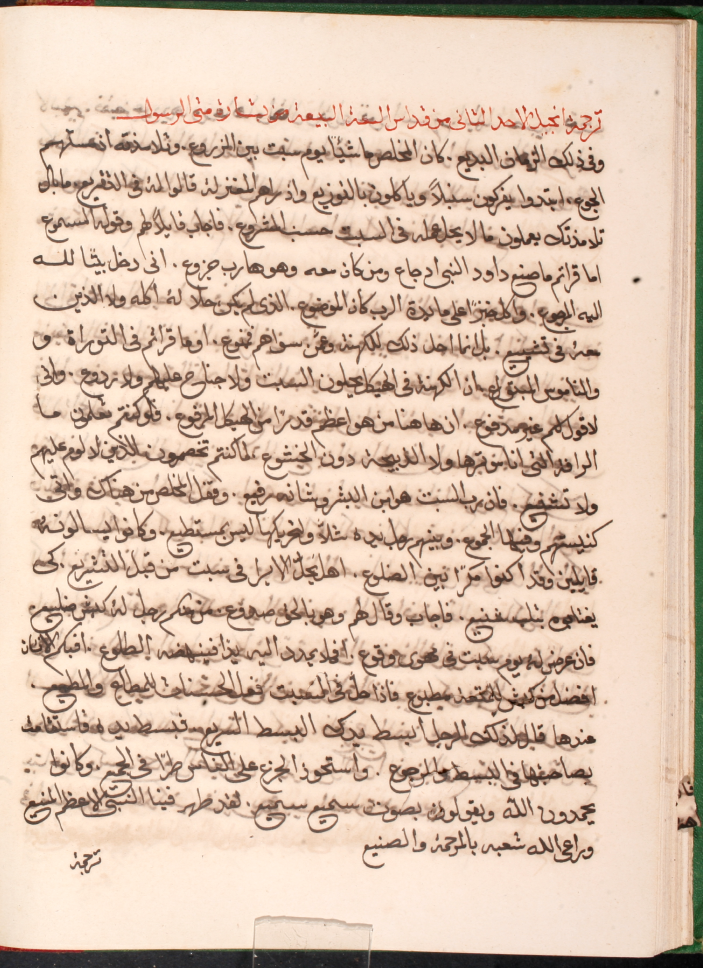 ترجمة انجيل الاحد الثاني من قداس البيعة من بشارة متى الرسول
وفي ذلك الزمان البديع. كان المخلص ماشيًا يوم سبت بين الزروع. وتلامذته اذ مسهم
الجوع. ابتدوا يفركون سنبلاً وياكلون بالتوزيع واذ راهم المعتزلة قالوا له في التقريع. ما بال
تلامذتك يعملون ما لا يحل عمله في السبت حسب المشروع. فاجاب قايلاً لهم وقوله المسموع
اما قراتم ما صنع داود النبي اذ جاع ومن كان معه وهو هارب جزوع. انى دخل بيتًا لله
اليه المهوع. واكل خبزًا على مايدة الرب كان الموضوع. الذي لم يكن حلاً له اكله ولا الذين
معه في تشييع. بل انما احل ذلك للكهنة وهو عن سواهم ممنوع. اوما قراتم في التوراة و
والناموس المتبوع. ان الكهنة في الهيكل يحلون السبت ولا جناح عليهم ولا ردوع. واني
لاقول لكم غير مدفوع. ان هاهنا من هو اعظم قدرًا من الهيكل المرفوع. فلو كنتم تعلمون ما
الرافة التي انا موثرها ولا الذبيحة دون الخشوع. لما كنتم تخصمون الذين لا لوم عليهم
ولا تشنيع. فان رب السبت هو ابن البشر وشانه رفيع. وقفل المخلص من هناك واتى
كنيستهم وفيها الجموع. وبينهم رجل يده شلاء وتحريكها ليس يستطيع. وكانوا يسالونه
قايلين وقد اكنوا مكرًا بين الضلوع. اهل يحل الابرا في سبت من قبل التشريع. كي
يغتابوه بثلب شنيع. فاجاب وقال لهم وهو بالحق صدوع. من منكم رجل له كبش ضليع
فان عرض له يوم سبت في مهوى وقوع. افلا يمدد اليه يدًا فينهضه الطلوع. افيكم الانسان
افضل من كبش للنقعة مطبوع فاذًا حل في السبت فعل الحسنات للمطاع والمطيع.
عندها قال لذلك الرجل ابسط يدك البسط السريع. فبسط يده فاستقامت
بصاحبتها في البسط والرجوع. واستحوذ الجزع على الناس طرًا في الجميع. وكانوا
يحمدون الله ويقولون بصوت سميع سميع. لقد ظهر فينا النبي الاعظم المنيع
وراعى الله شعبه بالرحمة والصنيع
ترجمة